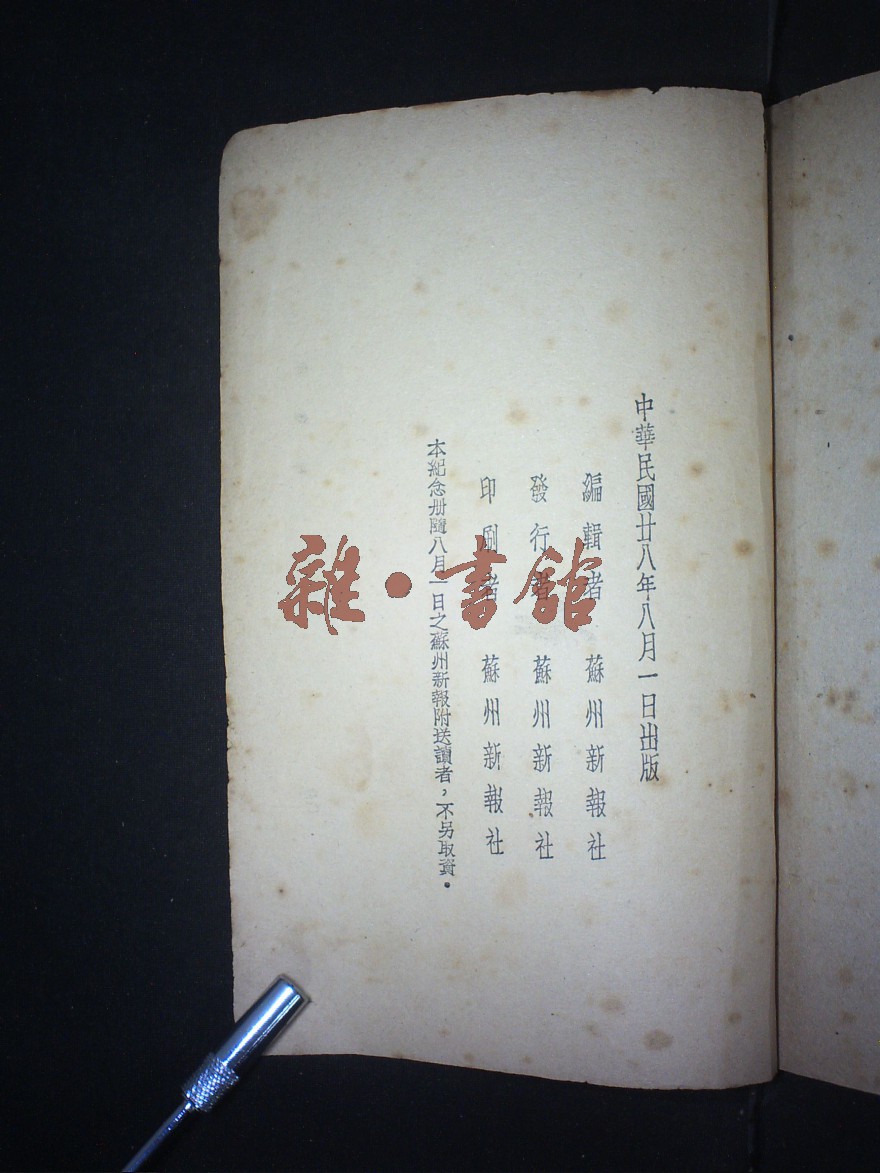 中華民國廿八年八月一日出版
編輯者 蘇州新報社
發行者 蘇州新報社
印刷者 蘇州新報社
本紀念册隨八月一日之蘇州新報附送讀者，不另取資。
雜·書館